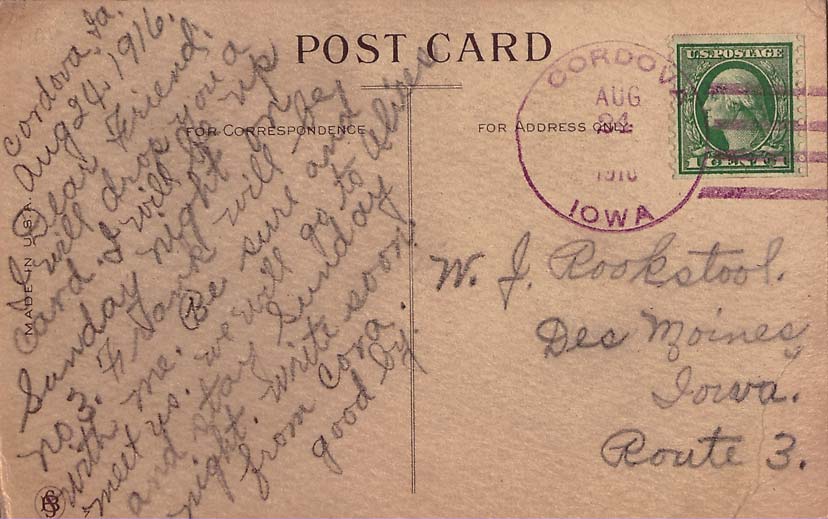 POST CARD
FOR CORRESPONDENCE
FOR ADDRESS ONLY.
MADE IN U.S.A.
Cordova, Ia.
Aug 24, 1916.
Dear Friend.
I will drop you a
card. I will be up
Sunday night on
no 3. Frank will be
with me. Be sure and
meet us. we will go to
and stay Sunday
night. write soon.
from Cora.
good by.
CORDOVA
AUG
24
1916
IOWA
U.S. POSTAGE
W. J. Rookstool.
Des Moines
Iowa.
Route 3.